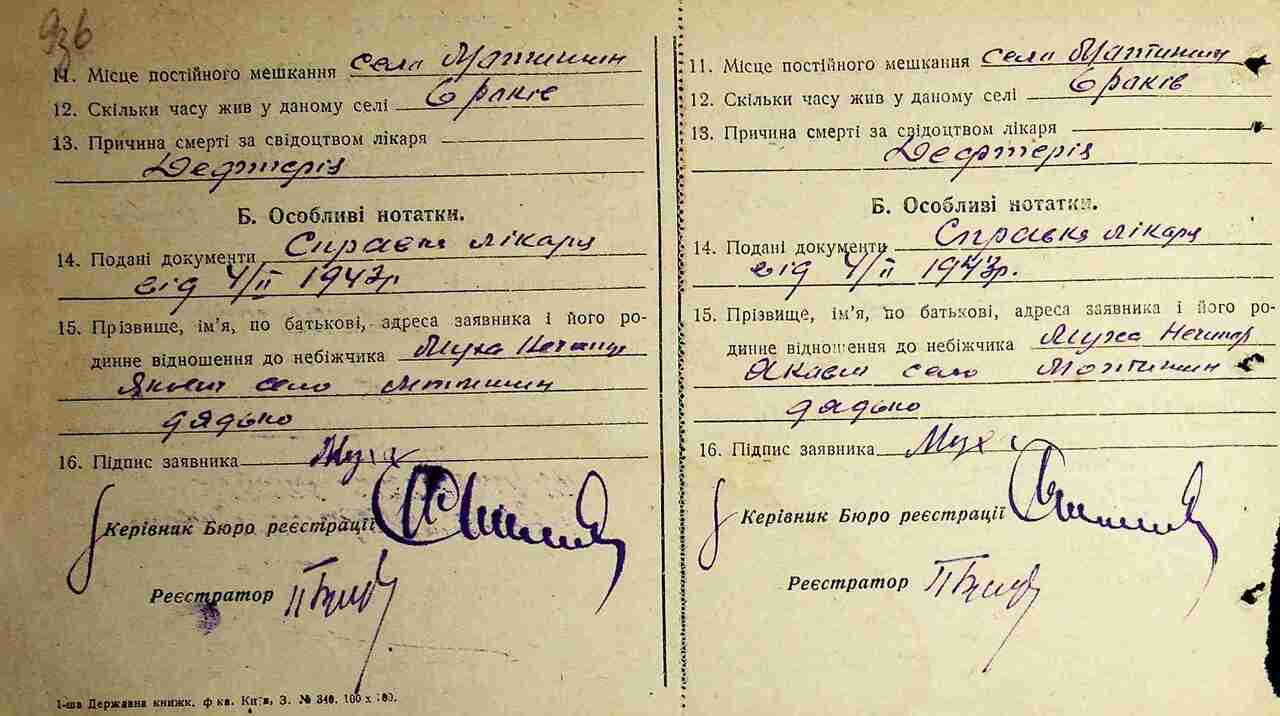 936
11. Місце постійного мешкання село Мотишин
12. Скільки часу жив у даному селі 6 раків
13. Причина смерті за свідоцтвом лікаря
Дефтерія
Б. Особливі нотатки.
14. Подані документи Справка лікаря
від 4/II 1943р
15. Прізвище, ім'я, по батькові, адреса заявника і його ро-
динне відношення до небіжчика Муха
село
дядько
16. Підпис заявника Муха
Керівник Бюро реєстрації
Реєстратор
1-ша Державна книжк. ф-ка. Київ, З. № 340. 100 х 100.
11. Місце постійного мешкання село Мотишин
12. Скільки часу жив у даному селі 6 раків
13. Причина смерті за свідоцтвом лікаря
Дефтерія
Б. Особливі нотатки.
14. Подані документи Справка лікаря
від 4/II 1943р.
15. Прізвище, ім'я, по батькові, адреса заявника і його ро-
динне відношення до небіжчика Муха
село Мотишин
дядько
16. Підпис заявника Муха
Керівник Бюро реєстрації
Реєстратор